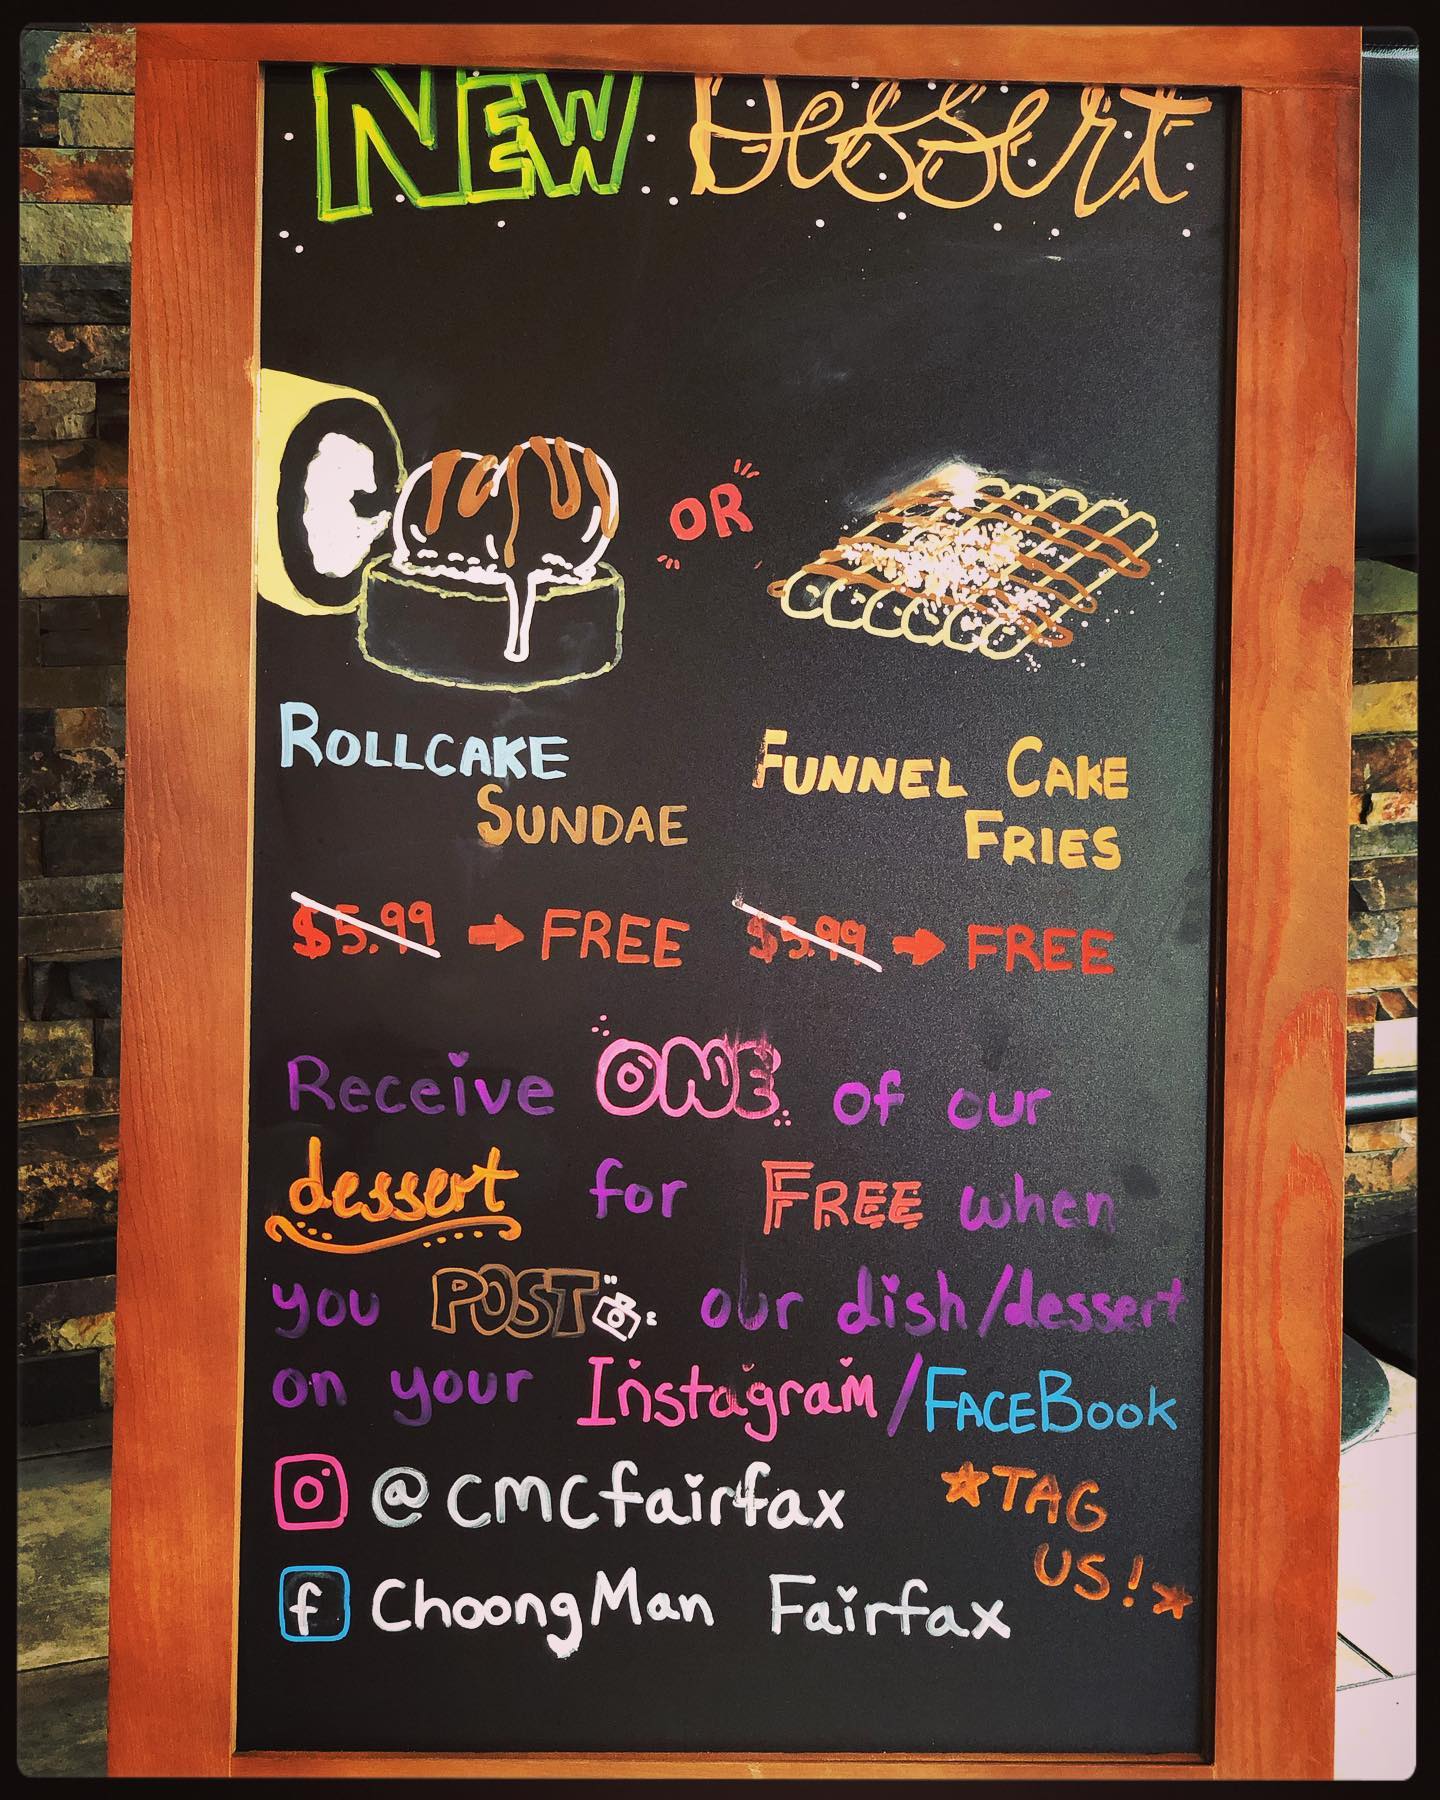 NEW Dessert
OR
ROLLCAKE
SUNDAE
FUNNEL CAKE
FRIES
$5.99 → FREE
$5.99 → FREE
Receive ONE of our
dessert for FREE when
you POST our dish/dessert
on your Instagram/FACEBook
@cmcfairfax
*TAG
US!*
f ChoongMan Fairfax